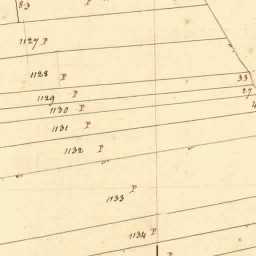 83
1127 P
1128 P
33
1129 P
27
1130 P
4
1131 P
1132 P
1133 P
1134 P
P